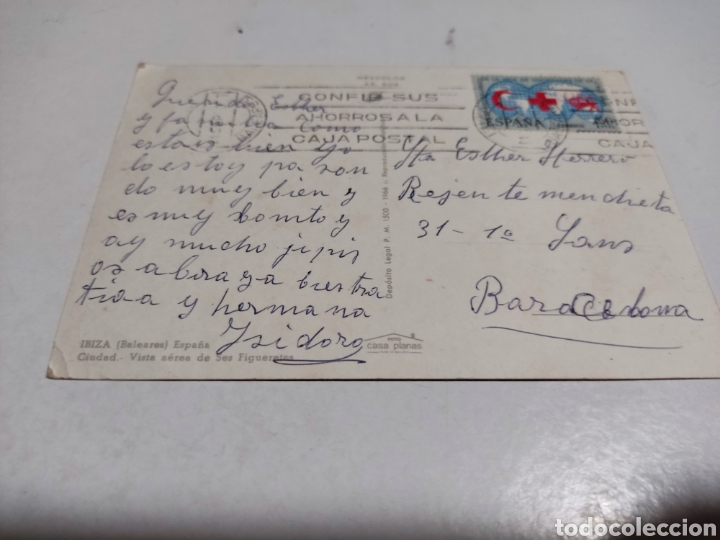 CONFIE SUS
AHORROS A LA
CAJA POSTAL
ESPAÑA
CAJA
Querida Esther
y familia como
estais bien yo
lo estoy pasan
do muy bien y
es muy bonito y
ay mucho jipis
os abraza buestra
tioa y hermana
Isidoro
Sta Esther Herrero
Rejente mendieta
31-1º Sans
Barcelona
Depósito Legal P. M. 1500 - 1966
casa planas
IBIZA (Baleares) España
Ciudad.- Vista aérea de Ses Figueretes
todocoleccion